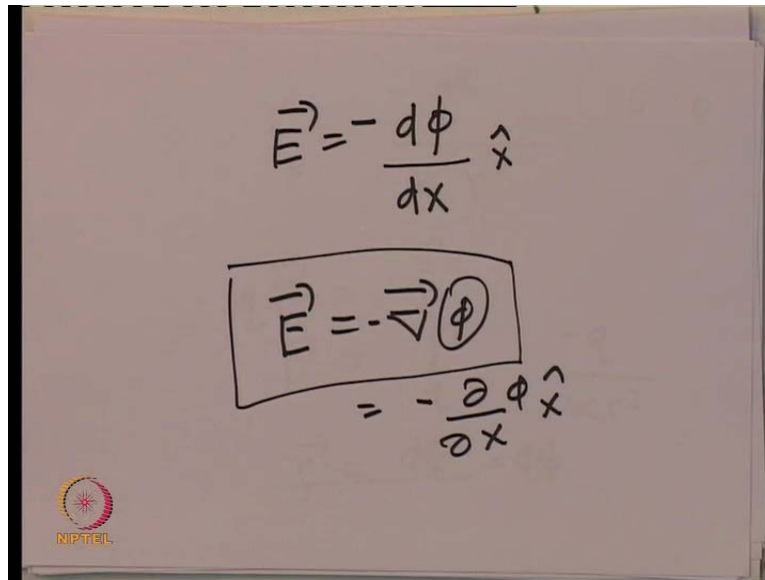 E⃗ = - dϕ/dx x̂
E⃗ = - ∇⃗ ϕ
= - ∂/∂x ϕ x̂
NPTEL